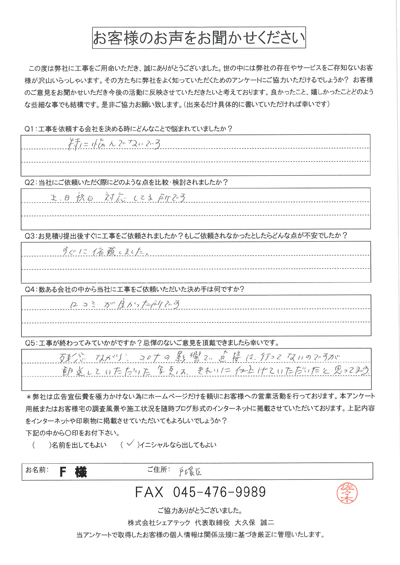 お客様のお声をお聞かせください
この度は弊社に工事をご用命いただき、誠にありがとうございました。世の中には弊社の存在やサービスをご存知ないお客
様が沢山いらっしゃいます。その方たちに弊社をよく知っていただくためのアンケートにご協力いただけるでしょうか? お客様
のご意見をお聞かせいただき今後の活動に反映させていただきたいと考えております。良かったこと、嬉しかったことどのよう
な些細な事でも結構です。是非ご協力お願い致します。(出来るだけ具体的に書いていただければ幸いです)
Q1:工事を依頼する会社を決める時にどんなことで悩まれていましたか?
特に悩んでないです
Q2:当社にご依頼いただく際にどのような点を比較・検討されましたか?
土、日祝日 対応してる所です
Q3:お見積り提出後すぐに工事をご依頼されましたか?もしご依頼されなかったとしたらどんな点が不安でしたか?
すぐに依頼しました。
Q4:数ある会社の中から当社に工事をご依頼いただいた決め手は何ですか?
口コミが良かった所です
Q5:工事が終わってみていかがですか?忌憚のないご意見を頂戴できましたら幸いです。
残念ながら、コロナの影響で直接は、行ってないのですが
していただいた写真は、きれいに仕上げていただいたと思ってます
*弊社は広告宣伝費を極力かけない為にホームページだけを頼りにお客様への営業活動を行っております。本アンケート
用紙またはお客様宅の調査風景や施工状況を随時ブログ形式のインターネットに掲載させていただいております。上記内容
をインターネットや印刷物に掲載させていただいてもよろしいでしょうか?
下記の中から○印をお付下さい。
( )名前を出してもよい (✓)イニシャルなら出してもよい
お名前: F 様 ご住所: 戸塚区
FAX 045-476-9989
ご協力ありがとうございました。
株式会社シェアテック 代表取締役 大久保 誠二
当アンケートで取得したお客様の個人情報は関係法規に基づき厳正に管理いたします。